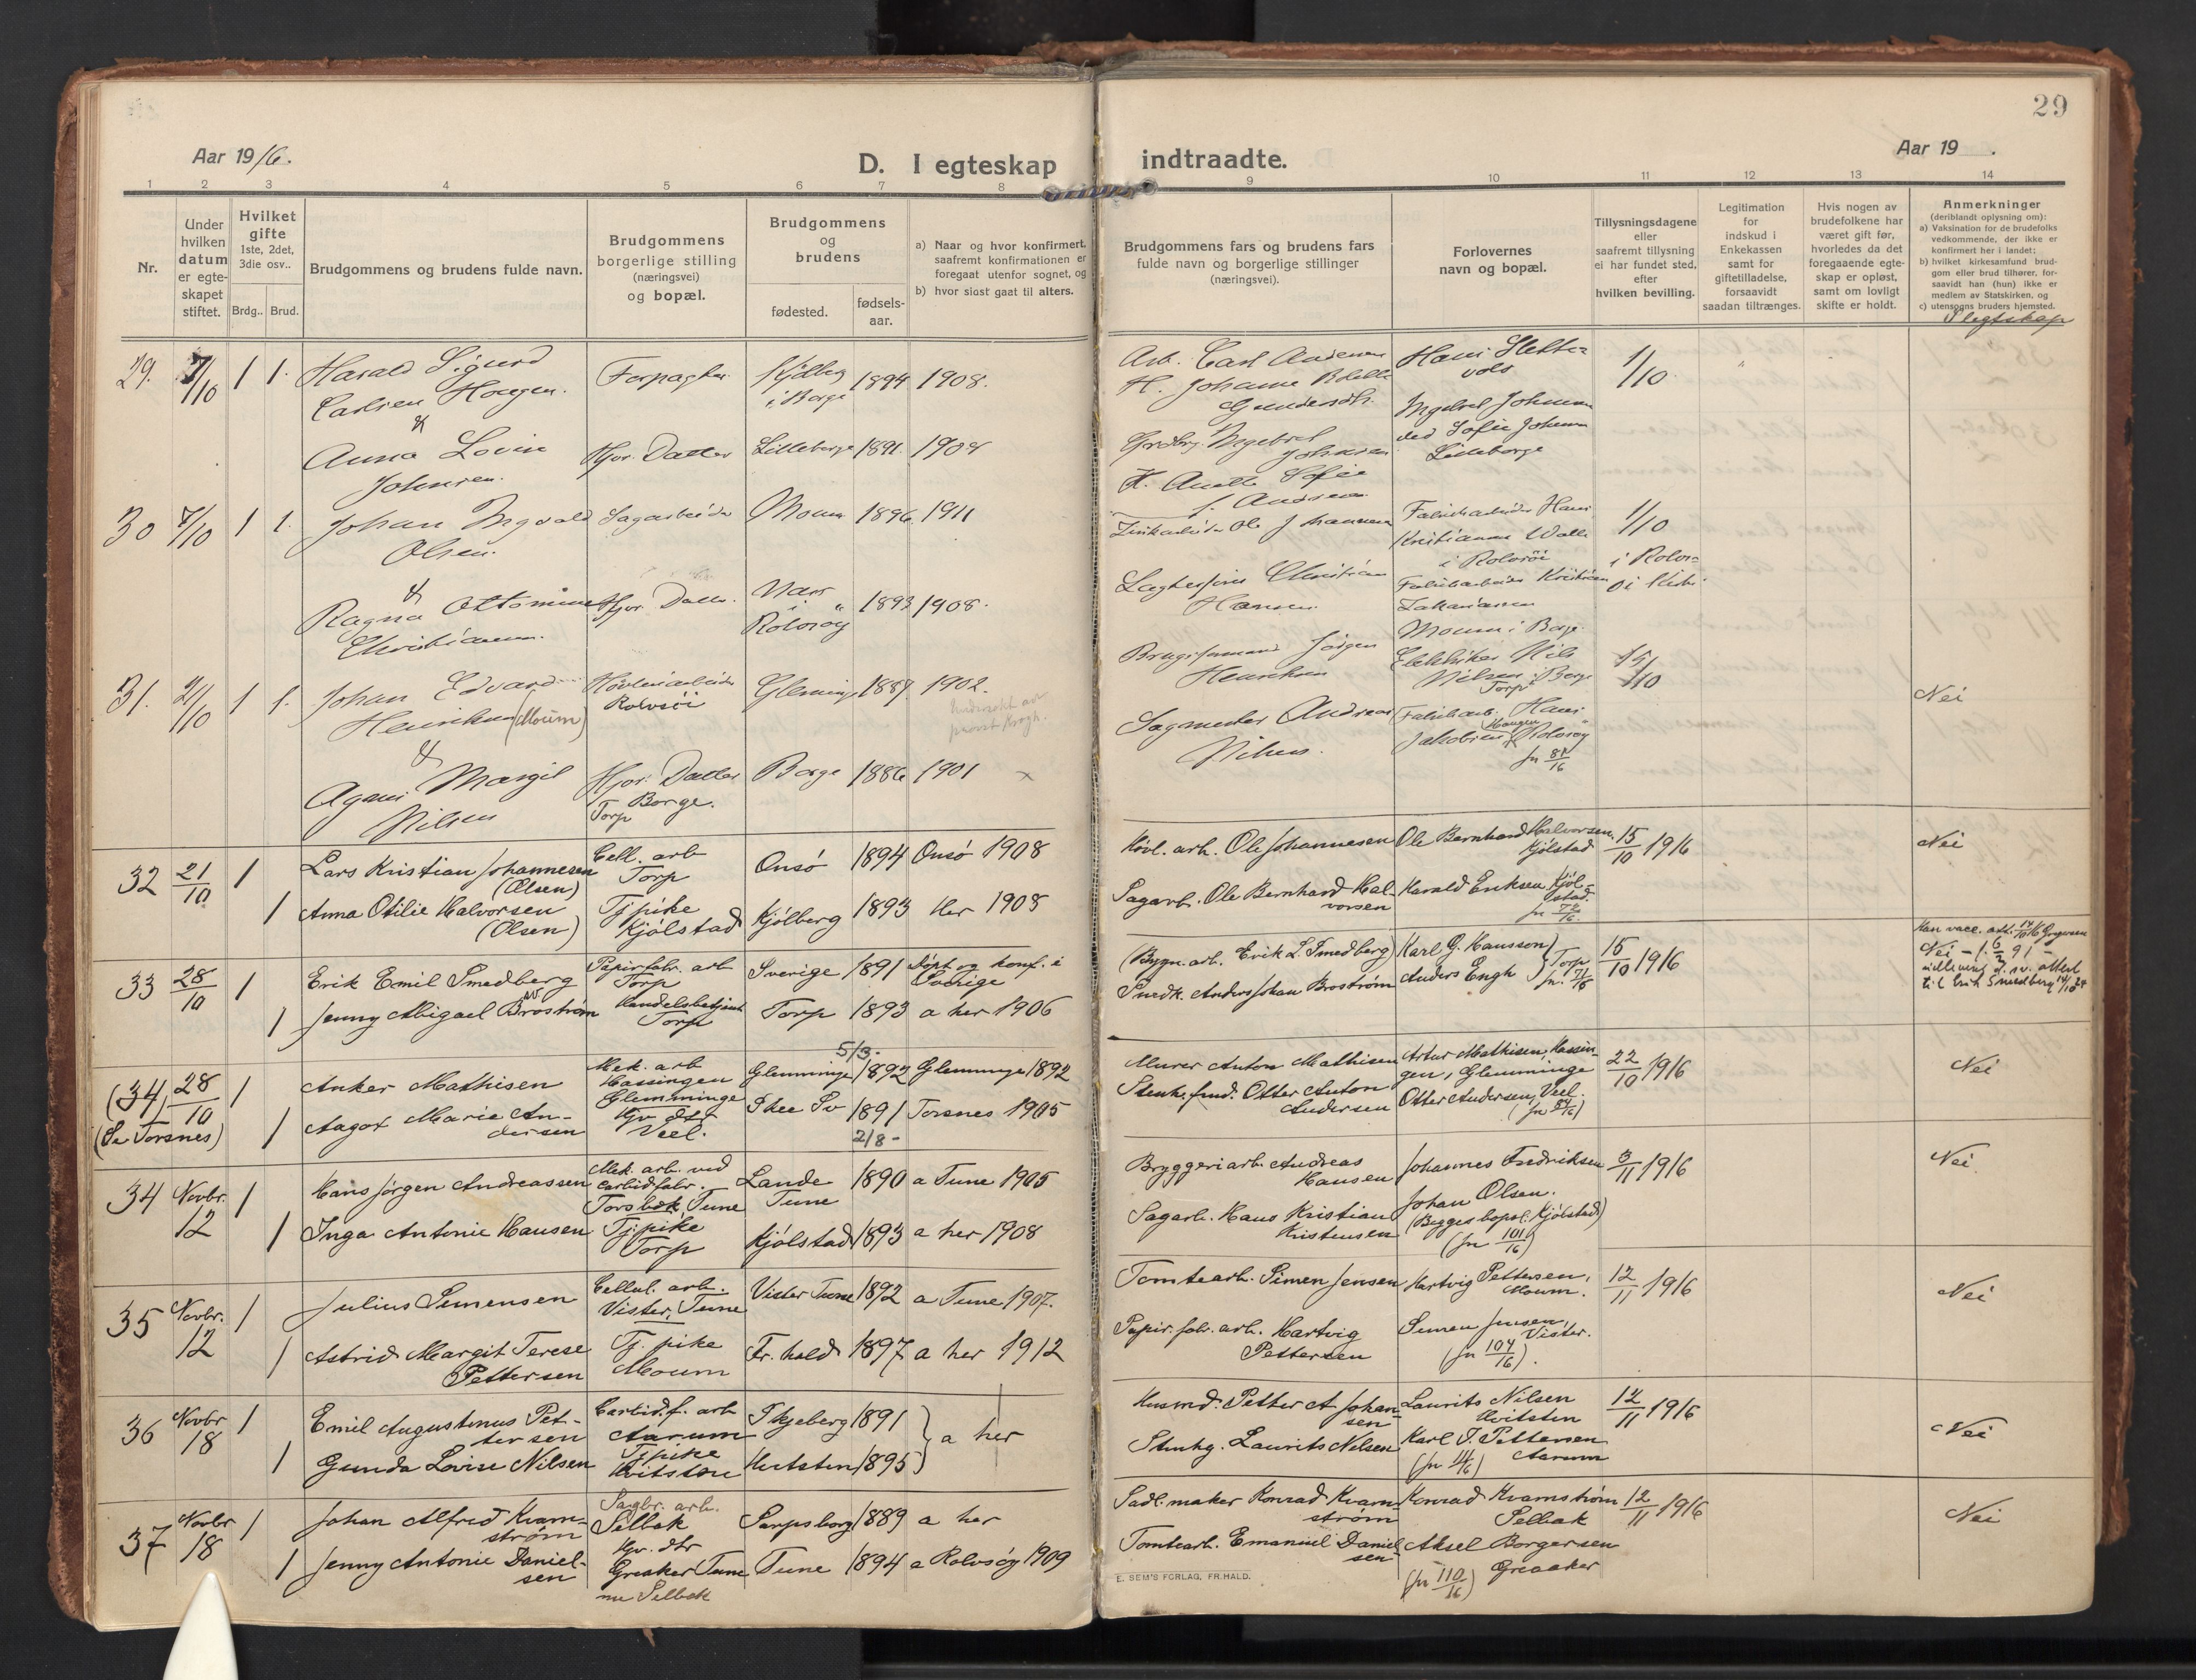 29
Aar 1916.
D. I egteskap indtraadte.
Aar 19 .
1 2 3 4 5 6 7 8 9 10 11 12 13 14
Nr.
Under hvilken datum er egteskapet stiftet.
Hvilket gifte
1ste, 2det, 3die osv..
Brdg.. Brud.
Brudgommens og brudens fulde navn.
Brudgommens borgerlige stilling (næringsvei) og bopæl.
Brudgommens og brudens
fødested.
fødsels-aar.
a) Naar og hvor konfirmert, saafremt konfirmationen er foregaat utenfor sognet, og
b) hvor sidst gaat til alters.
Brudgommens fars og brudens fars fulde navn og borgerlige stillinger (næringsvei).
Forlovernes navn og bopæl.
Tillysningsdagene eller saafremt tillysning ei har fundet sted, efter hvilken bevilling.
Legitimation for indskud i Enkekassen samt for giftetilladelse, forsaavidt saadan tiltrænges.
Hvis nogen av brudefolkene har været gift før, hvorledes da det foregaaende egteskap er opløst, samt om lovligt skifte er holdt.
Anmerkninger
(deriblandt oplysning om):
a) Vaksination for de brudefolks vedkommende, der ikke er konfirmert her i landet;
b) hvilket kirkesamfund brudgom eller brud tilhører, forsaavidt han (hun) ikke er medlem av Statskirken, og
c) utensogns bruders hjemsted.
Slegtskap
29. 7/10 1 1. Harald Sigurd Forpagter Kjølberg i Borge 1894 1908. Arb. Carl Andersen Hans Slette- 1/10
Carlsen Haugen.
&
Anna Lovise Johnsen. Hjv. Datter Lilleborge 1891. 1908 Ingebret Johnsen
Lilleborge
30 7/10 1 1. Johan Ingvald Olsen. Sagarbeider Moum 1896. 1911 Ole Johannesen Fabrikarbeider Hans 1/10
i Rolvsöi
&
Ragna Ottomine Christiansen. Hjv. Datter. Rolvsöy 1893 1908. Christian Hansen. Fabrikarbeider Kristian Zakariassen
Moum i Borge.
31. 21/10 1 1. Johan Edvard Henriksen (Moum) Høvleriarbeider Rolvsöi Glemmige 1887. 1902. Brugsformand Jörgen Henriksen Elektriker Nils Nilsen i Borge Torp 15/10 Nei
&
Agnes Margit Nilsen Hjv. Datter Borge. Torp Borge 1886 1901 x Sagmester Andreas Nilsen. Fabrikarb. Hans Jakobsen Haugen Rolvsöy
jn 81/16
32 21/10 1 Lars Kristian Johannesen (Olsen) Cell. arb Torp Onsø 1894 Onsø 1908 Høvl. arb. Ole Johannesen Ole Bernhard Halvorsen. Kjølstad 15/10 1916 Nei
1 Anna Otilie Halvorsen (Olsen) Tj pike Kjølstad Kjølberg 1893 Her 1908 Sagarb. Ole Bernhard Halvorsen Harald Eriksen Kjølstad.
33 28/10 1 Erik Emil Smedberg Papirfabr. arb Torp Sverige 1891 Døpt og konf. i Sverige (Bygn. arb. Erik L. Smedberg) Karl G. Hansson) Torp 15/10 1916
1 Jenny Abigael Broström Handelsbetjent Torp Torp 1893 a her 1906 Snedk. Anders Johan Broström Anders Engh
(34) 28/10 1 Anker Mathisen Mek. arb Hassingen Glemminge Glemminge 5/3- 1892 Glemminge 1892 Murer Anton Mathisen Artur Mathisen, Hassingen, Glemminge 22/10 1916 Nei
(Se Torsnes) 1 Aagot Marie Andersen Hjv dtr Veel. Skee Sv 1891 2/8- Torsnes 1905 Stenh. fmd. Otter Anton Andersen Otter Andersen, Veel.
34 Novbr. 12 1 Hans Jørgen Andreassen Mek. arb. ved carbidfabr. Torsbæk, Tune Lande Tune 1890 a Tune 1905 Bryggeriarb. Andreas Hansen Johannes Fredriksen 3/11 1916 Nei.
1 Inga Antonie Hansen Tj. pike Torp Kjølstad 1893 a her 1908 Sagarb. Hans Kristian Kristensen Johan Olsen.
(Begges bopæl Kjølstad)
(jn 101/16)
35 Novbr. 12 1 Julius Simensen Cellul. arb. Vister, Tune Vister Tune 1892 a Tune 1907. Tomtearb. Simen Jensen Hartvig Pettersen, Moum. 12/11 1916 Nei
1 Astrid Margit Terese Pettersen Tj. pike Moum Fr. hald 1897 a her 1912 Papir. fabr. arb. Hartvig Pettersen Simen Jensen, Vister.
(jn 104/16).
36 Novbr 18 1 Emil Augustinus Pettersen Carbidf. arb Aarum Skjeberg 1891 } a her Husmd. Petter A Johansen Laurits Nilsen Hvitsten 12/11 1916 Nei
1 Gunda Lovise Nilsen Tj pike Hvitsten Hvitsten 1895 Stenhg. Laurits Nilsen Karl J. Pettersen Aarum
37 Novbr 18 1 Johan Alfred Kvamström Sagbr. arb. Selbak Sarpsborg 1889 a her Sadl. maker Konrad Kvamström Konrad Kvamström Selbak 12/11 1916 Nei
1 Jenny Antonie Danielsen Hjv. dtr Greaker Tune nu Selbak Tune 1894 a Rolvsöy 1909 Tomtearb. Emanuel Danielsen Aksel Borgersen Greaaker
(jn 110/16)
E. SEM'S FORLAG, FR.HALD.